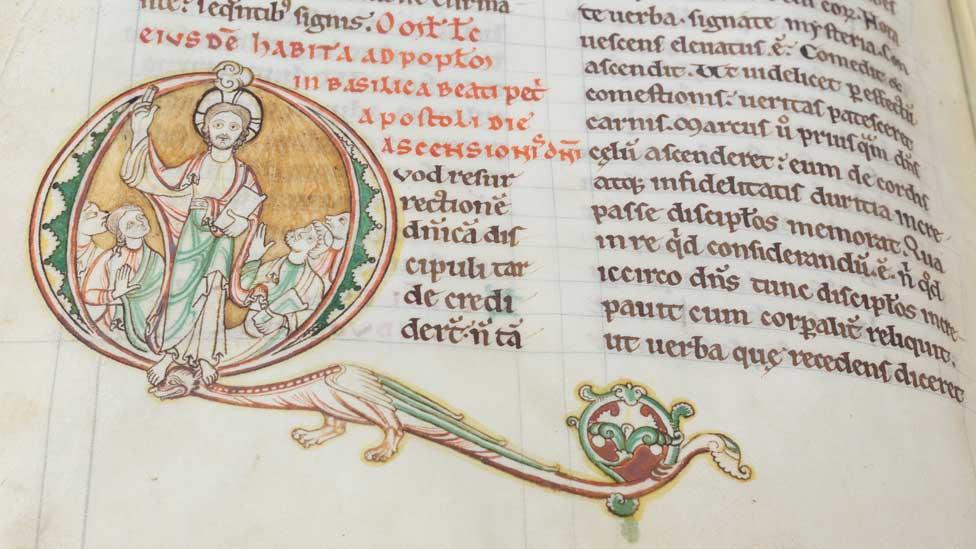 sequtib᷒ signis.
EIUS DE̅ HABITA AD POPL̅OS
IN BASILICA BEATI PET͛
APOSTOLI DIE
ASCENSIONIS DN̅I
vod resur
rectione̅
dn̅ica̅ dis
cipuli tar
de credi
der̅t. n̅ ta̅
te verba. signate mysteria. Con
vescens elevatus .e̅. Comedit &
ascendit. Ut videlicet p̲ effectu̅
comestionis. veritas patesceret
carnis. Marcus u̅ priusqua̅ dn̅s
celu̅ ascenderet. eum de cordis
atq; infidelitatis duritia incre
passe discipl̅os memorat. Qua
in re q̅d considerandu̅ .e̅. n̅ q̅d
iccirco dn̅s tunc discipl̅os incre
pavit cum corp̲alit̅ reliquit.
ut verba quę recedens diceret